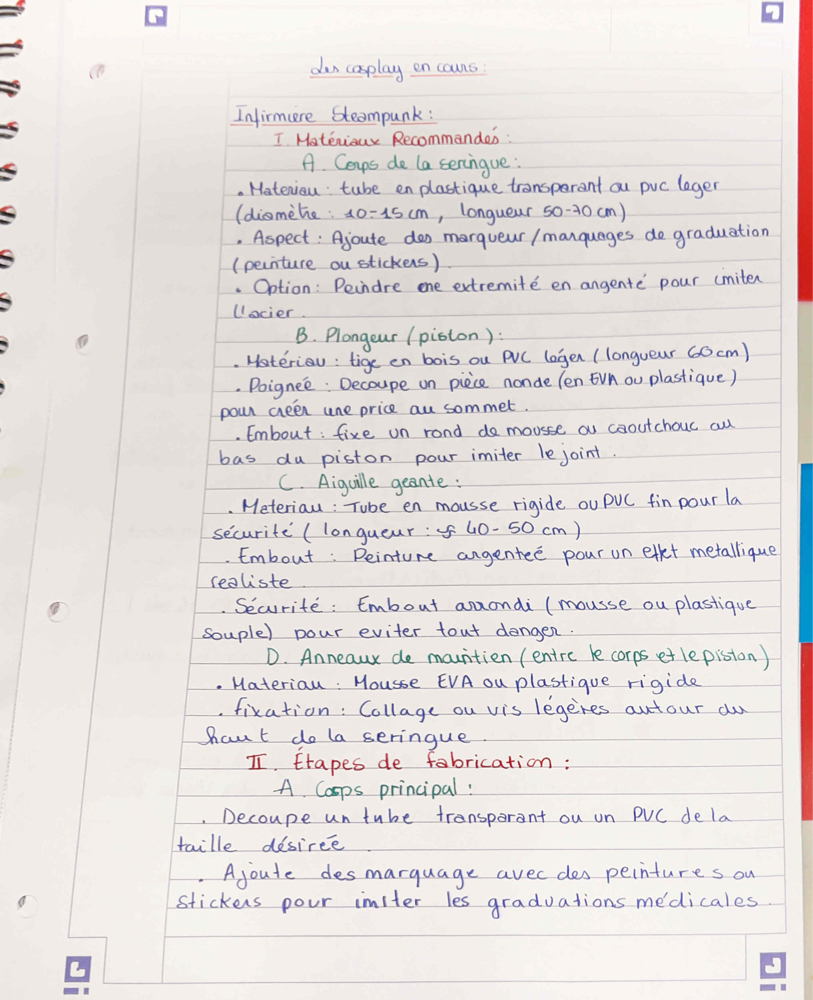 Les cosplay en cours :
Infirmiere Steampunk :
I. Matériaux Recommandés :
A. Corps de la seringue :
. Materiau : tube en plastique transparant ou pvc leger
(diamètre : 10-15 cm, longueur 50-70 cm)
. Aspect : Ajoute des marqueur/marquages de graduation
(peinture ou stickers).
. Option : Peindre une extremité en argenté pour imiter
l'acier.
B. Plongeur (piston) :
. Matériau : tige en bois ou PVC léger (longueur 60 cm)
. Poigneé : Decoupe un pièce ronde (en EVA ou plastique)
pour créér une price au sommet.
. Embout : fixe un rond de mousse ou caoutchouc au
bas du piston pour imiter le joint.
C. Aiguille geante :
. Materiau : Tube en mousse rigide ou PVC fin pour la
sécurité (longueur : 40-50 cm)
. Embout : Peinture argenteé pour un effet metallique
realiste.
. Sécurité : Embout arrondi (mousse ou plastique
souple) pour eviter tout danger.
D. Anneaux de maintien (entre le corps et le piston)
. Materiau : Mousse EVA ou plastique rigide
. fixation : Collage ou vis légères autour du
haut de la seringue.
II. Étapes de fabrication :
A. Corps principal :
. Decoupe un tube transparant ou un PVC de la
taille désireé.
. Ajoute des marquage avec des peintures ou
stickers pour imiter les graduations médicales.